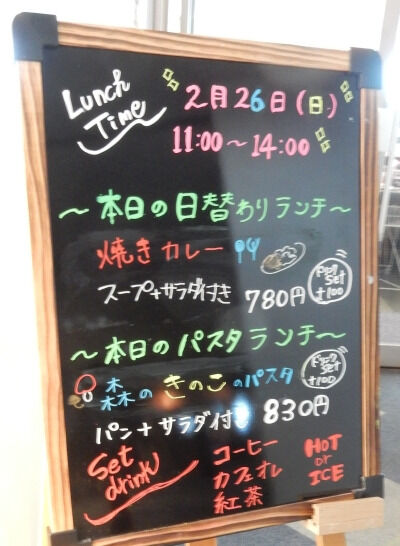 Lunch Time
2月26日(日)
11:00～14:00
～本日の日替わりランチ～
焼きカレー
スープ+サラダ付き 780円
ドリンク Set +100
～本日のパスタランチ～
森のきのこのパスタ
ドリンク Set +100
パン+サラダ付き 830円
Set drink
コーヒー
カフェオレ
紅茶
HOT or ICE